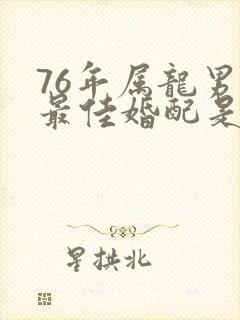 76年属龍男
最佳婚配是
星拱北